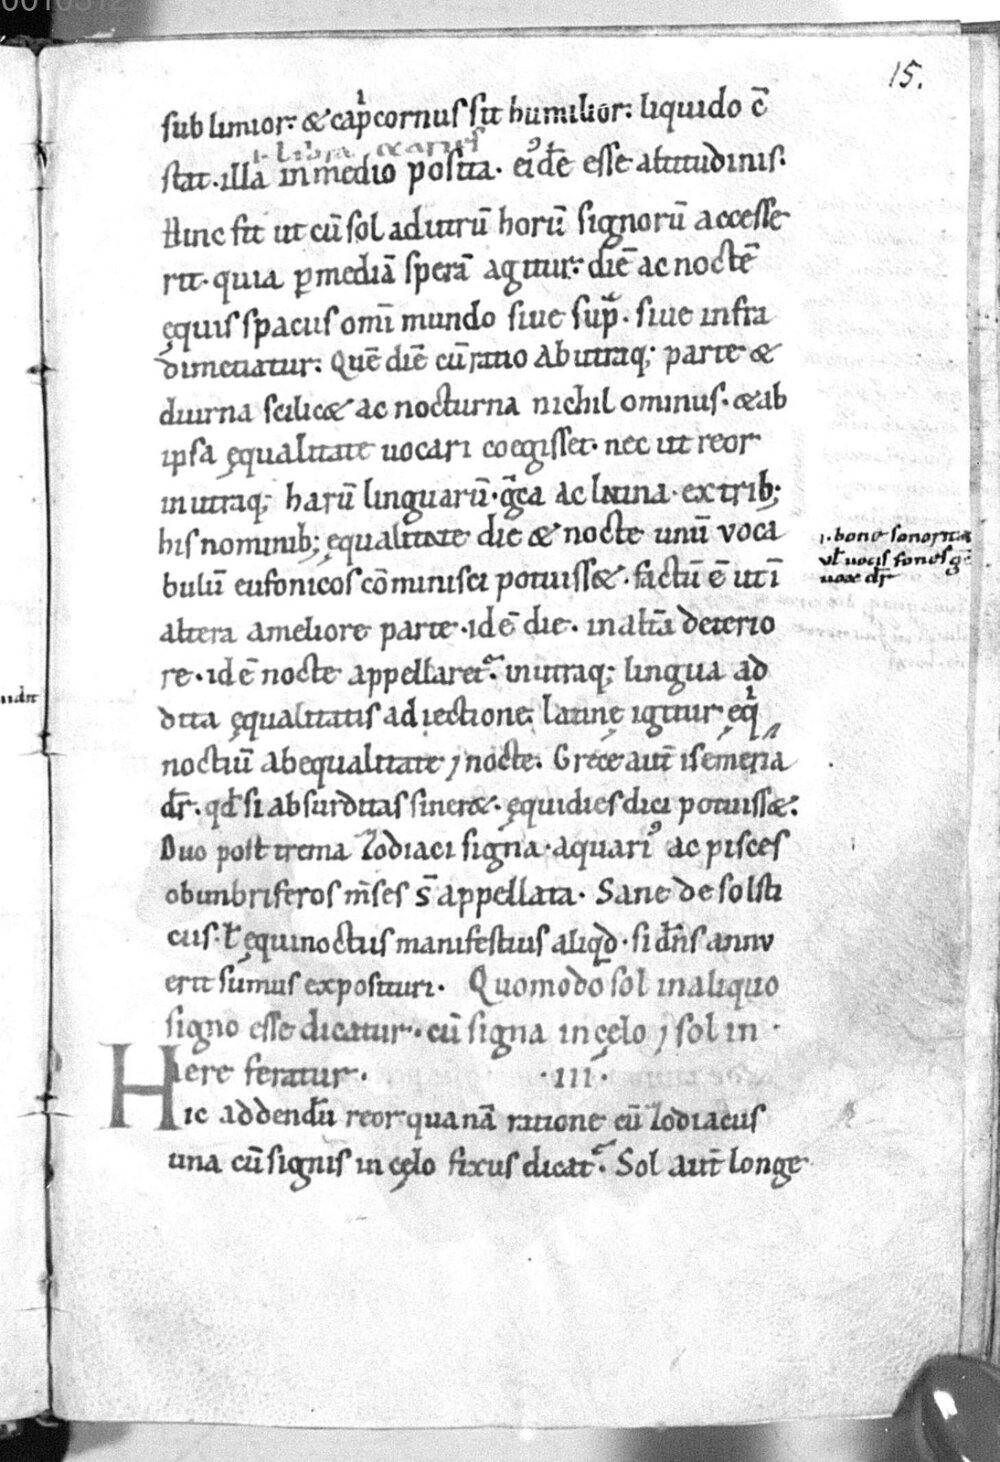 15.
sublimior: & cap̍cornus sit humilior: liquido c̄
.i. Libra. & aries
stat. illa in medio posita. eiꝰdē esse altitudinis.
Hinc fit ut cū sol ad utrū horū signorū accesse
rit. quia ꝑ mediā sperā agitur: diē ac noctē
ęquis spaciis omī mundo siue sup̃. siue infra
dimetiatur: Quē diē cū ratio ab utraq; parte &
diurna scilic& ac nocturna nichilominus. & ab
ipsa ęqualitate uocari coegisset. nec ut reor
in utraq; harū linguarū. g̃ca ac latina. ex trib;
his nominib; ęqualitate die & nocte unū voca
bulū eufonicos cōminisci potuiss&. factū ē utī
altera a meliore parte. id ē die. in altā deterio
re. id ē nocte appellaret᷑. in utraq; lingua ad
dita ęqualitatis adiectione. latine igitur ęq̍
noctiū ab equalitate ⁊ nocte. Grece aut̄ isemeria
dr̄. qd̄ si absurditas siner&. ęquidies dici potuiss&:
Duo post trema zodiaci signa. aquariꝰ ac pisces
ob imbriferos m̄ses s̄ appellata. Sane de solsti
ciis. ł ęquinoctiis manifestius aliqd̄. si dn̄s annu
erit sumus exposituri. Quomodo sol in aliquo
signo esse dicatur. cū signa in cęlo ⁊ sol in
here feratur. .III.
Hic addendū reor qua nā ratione cū zodiacus
una cū signis in cęlo fixus dicat᷑. Sol aut̄ longe
.i. bone sonoritatis
vł uocis fonos gc̄
uoce dr̄